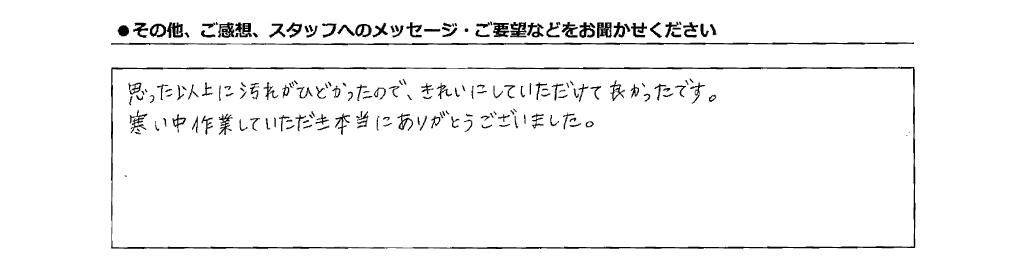 ●その他、ご感想、スタッフへのメッセージ・ご要望などをお聞かせください
思った以上に汚れがひどかったので、きれいにしていただけて良かったです。
寒い中作業していただき本当にありがとうございました。